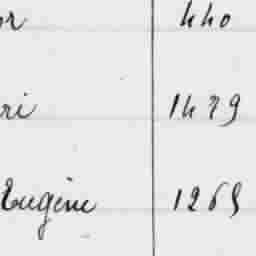 or 440
ri 1479
Eugène 1265